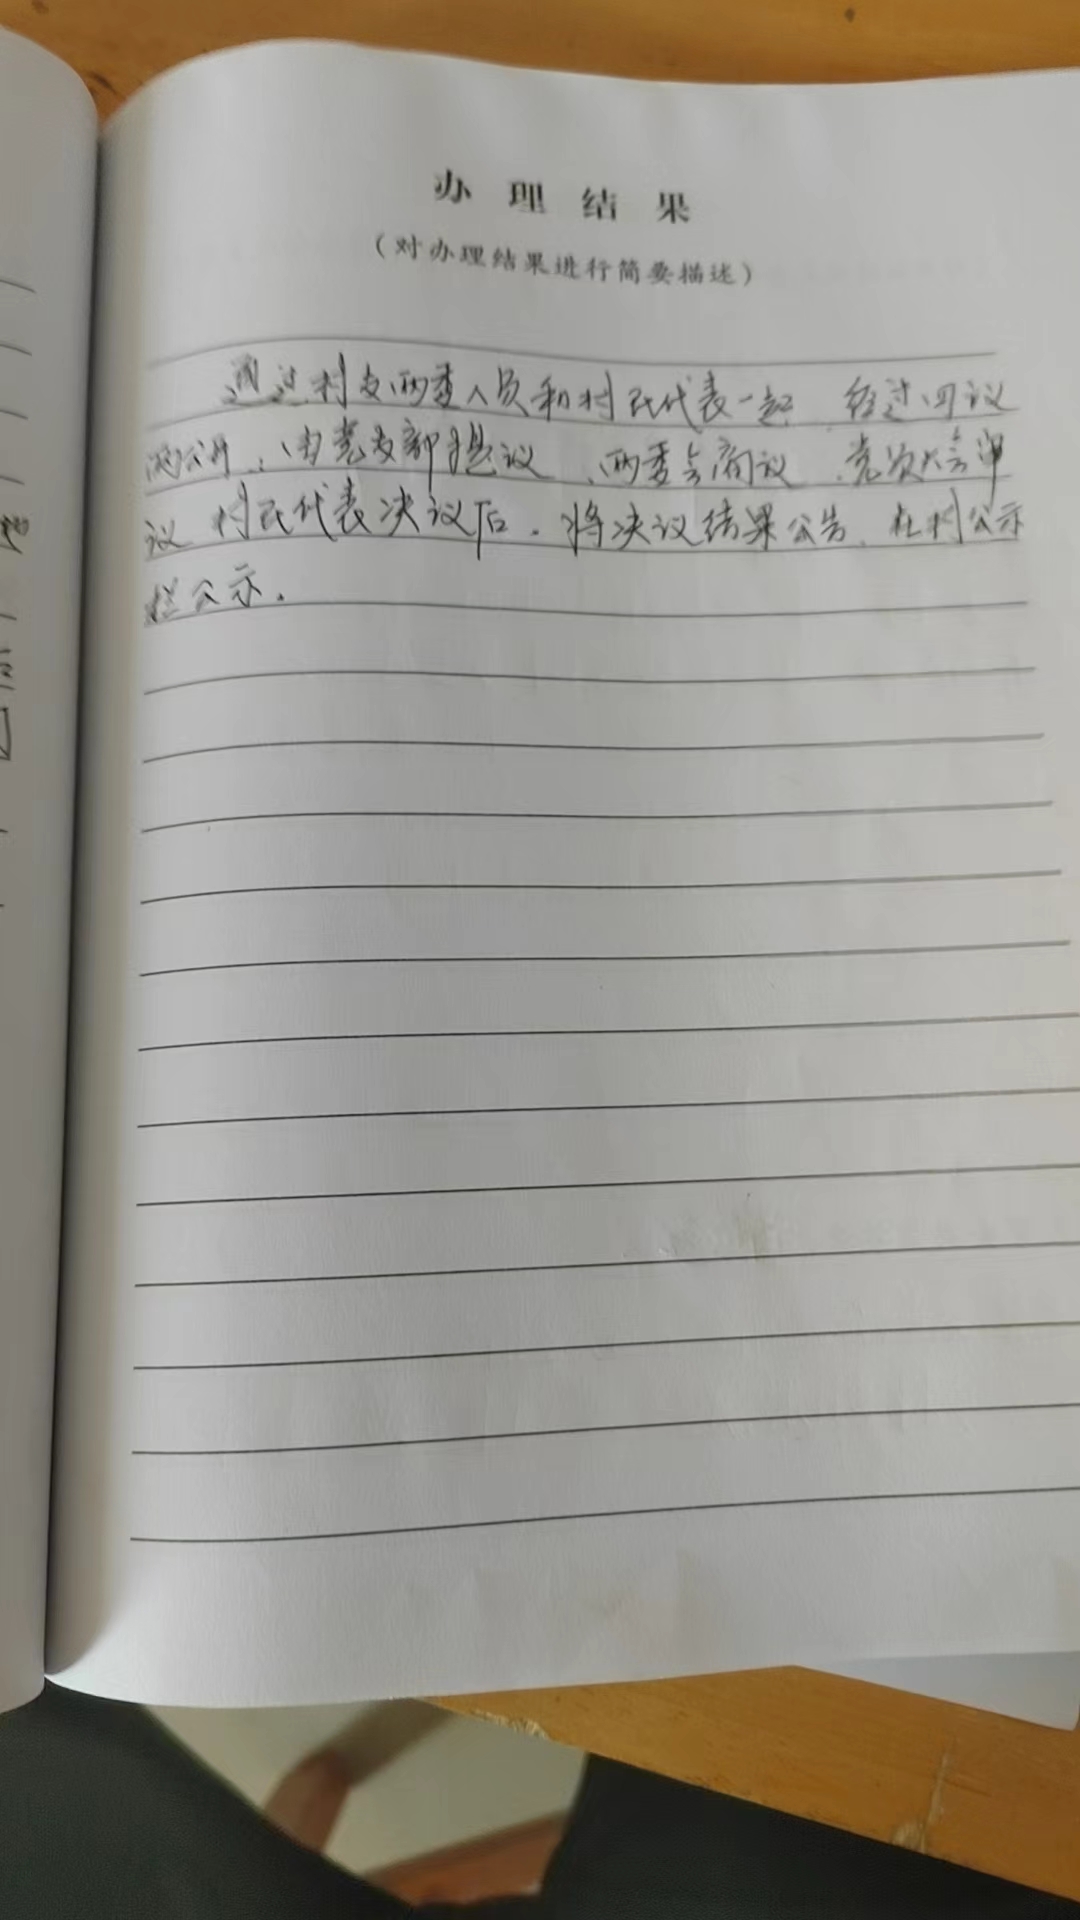 办理结果
（对办理结果进行简要描述）
通过村支两委人员和村民代表一起 经过四议
两公开，由党支部提议、两委会商议、党员大会审
议 村民代表决议后。将决议结果公告、在村公示
栏公示。